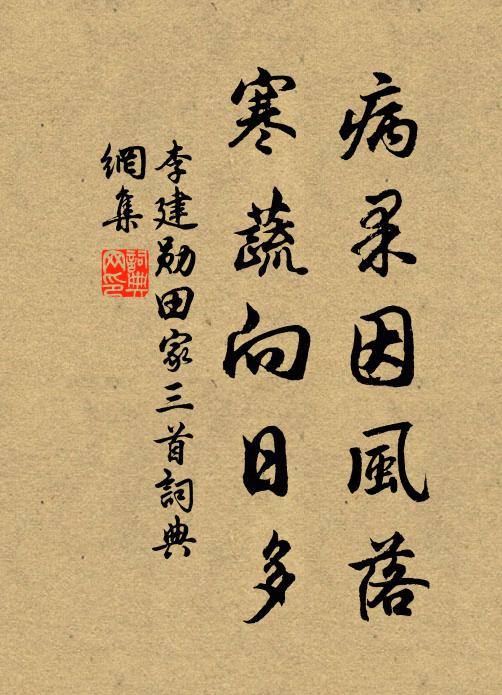 病果因風落
寒蔬向日多
李建勋田家三首詞典
網集
詞典
网印